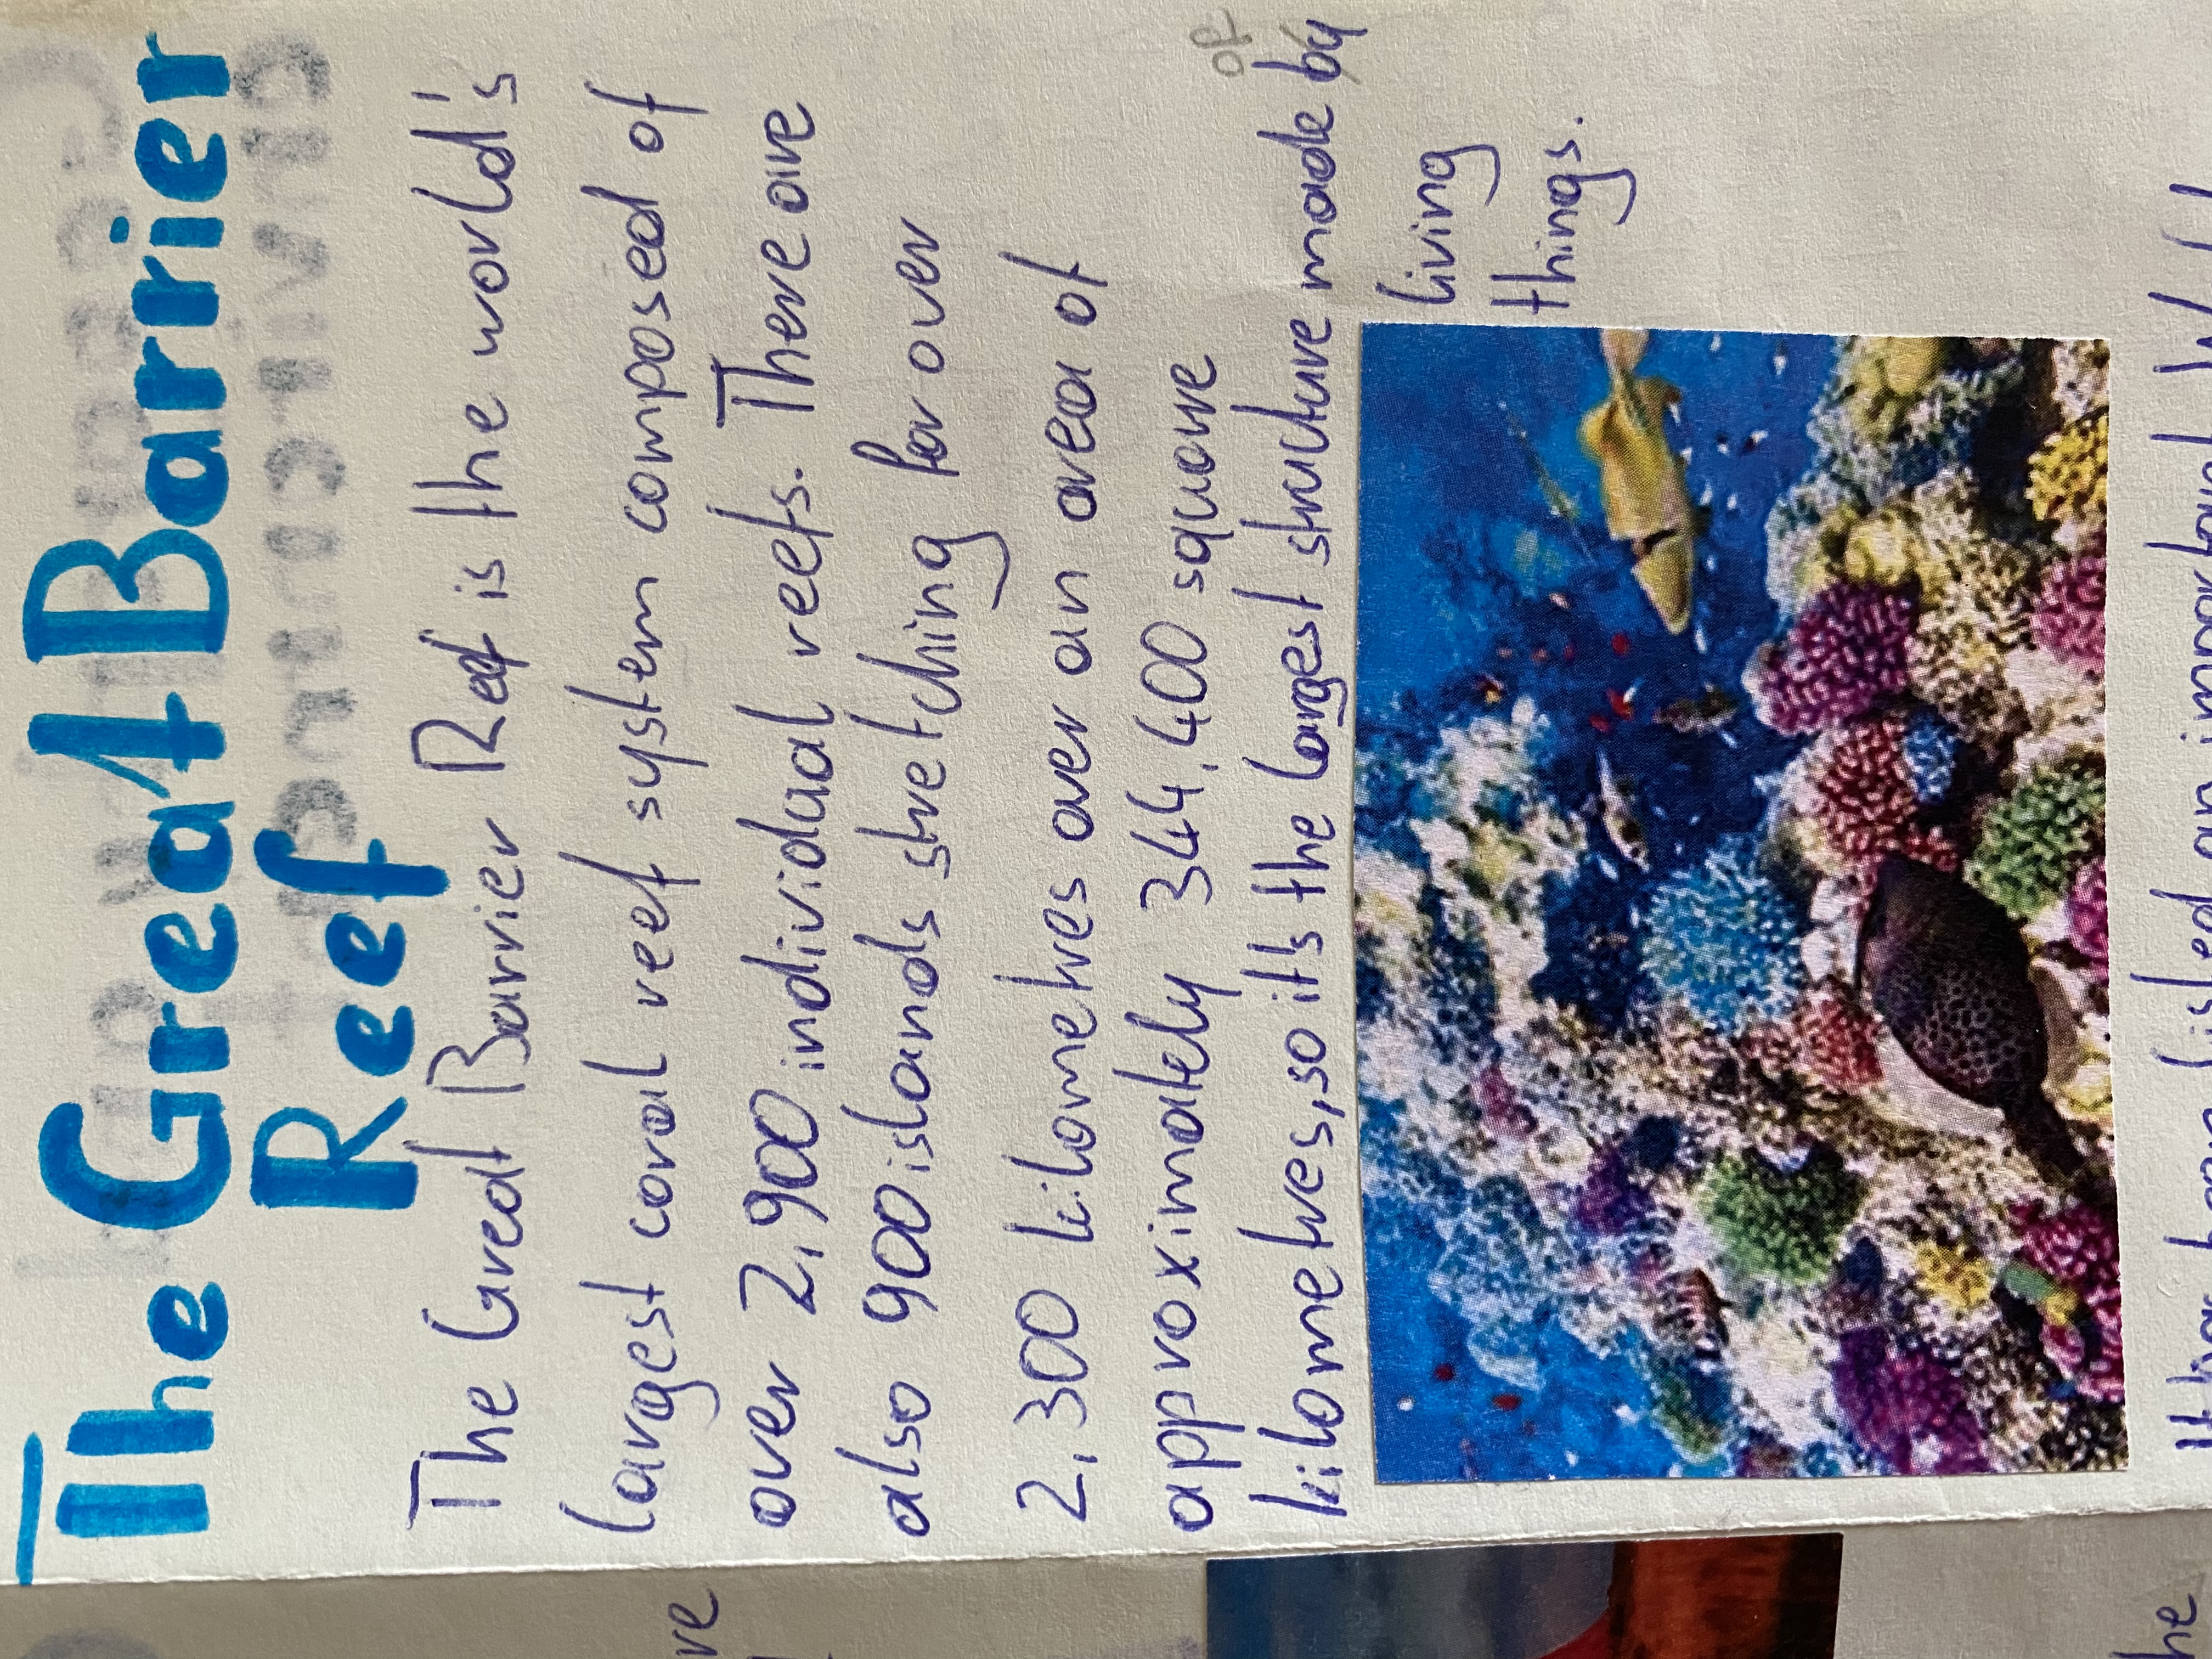 The Great Barrier
Reef
The Great Barrier Reef is the world's
largest coral reef system composed of
over 2,900 individual reefs. There are
also 900 islands stretching for over
2,300 kilometres over an area of
approximately 344,400 square
of
kilometres, so it's the largest structure made by
living
things.
It has been listed an important W
re
he